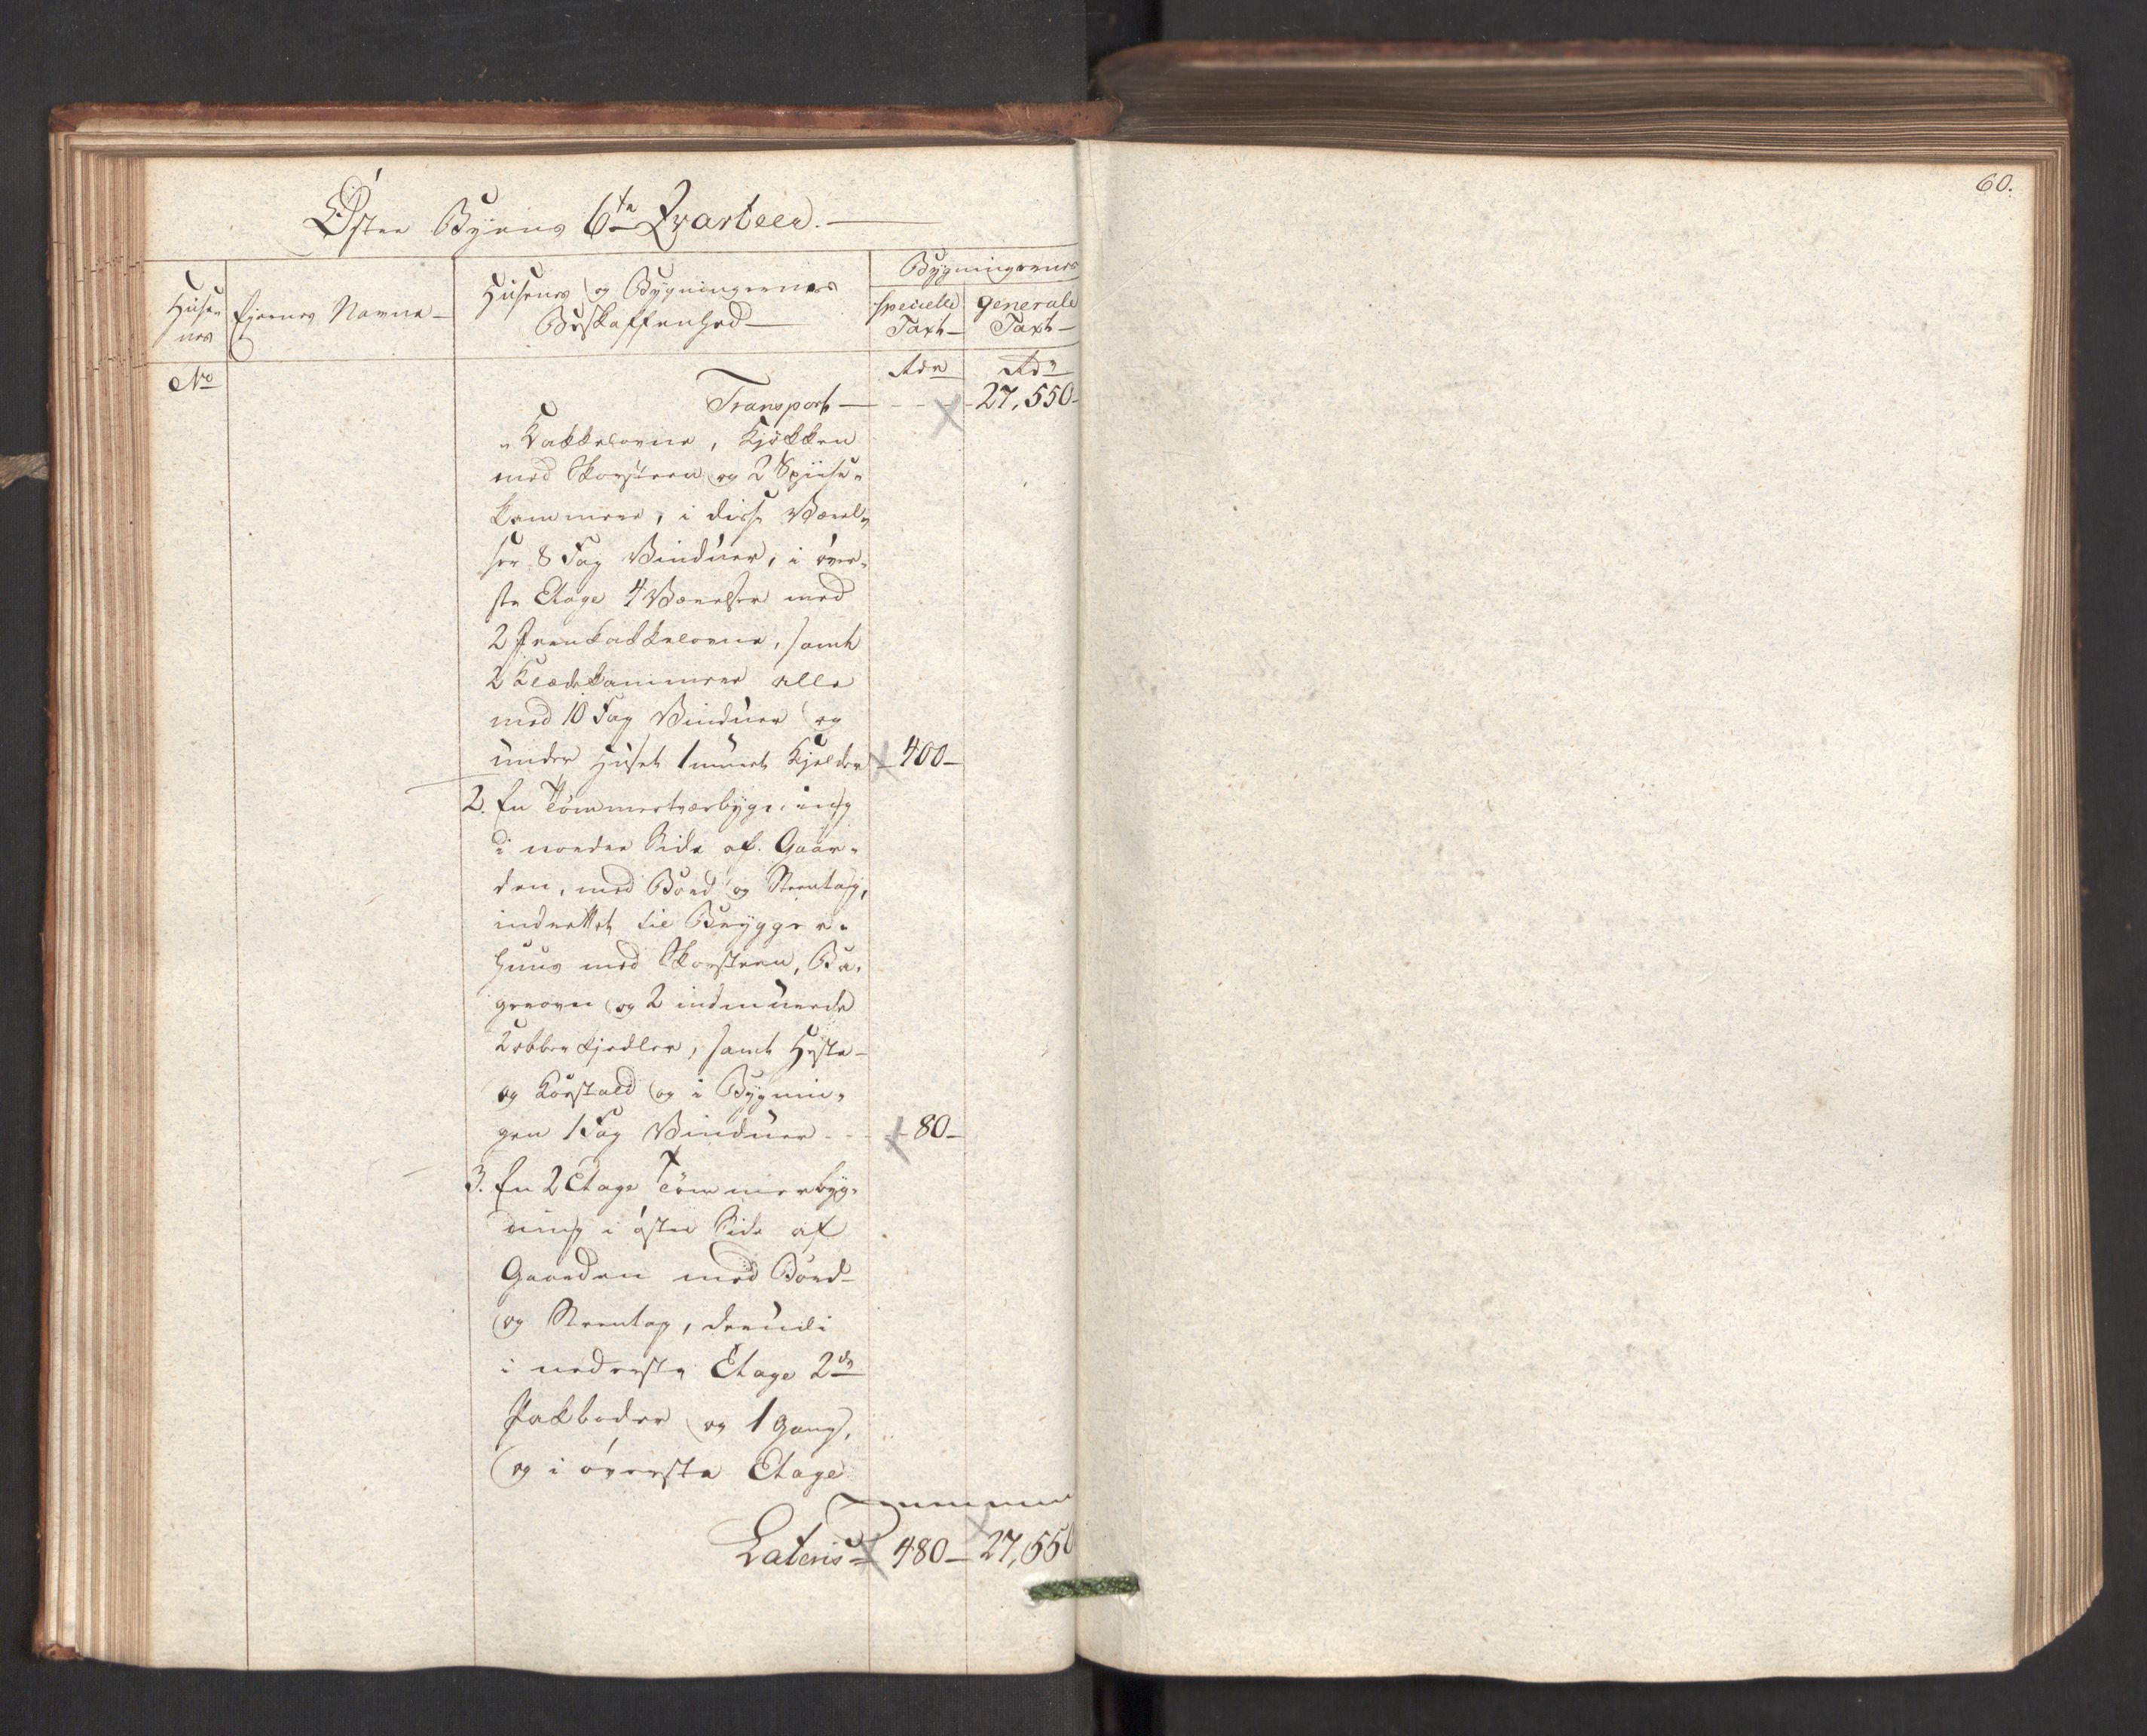 60.
Øster Byens 6te Qvarteer. —
Huse-
nes
Ejernes Navne —
Husenes og Bygningernes
Beskaffenhed —
Bygningernes
specielle
Taxt —
generale
Taxt —
No
Rdr
Rdr
Transport — - - - 27,550 -
„ Kakkelovne, Kjøkken
med Skorsteen og 2 Spiise-
kammere, i disse Værel-
ser 8 Fag Vinduer, i øver-
ste Etage 4 Værelser med
2 Jernkakkelovne, samt
2 Klædekammere alle
med 10 Fag Vinduer og
under Huset 1 muret Kjelder — 400 —
2. En Tømmertværbygning
i norder Side af Gaar-
den, med Bord og Steentag,
indrettet til Brygger-
huus med Skorsteen, Ba-
gerovn og 2 indmuurede
Kobber Kjedler, samt Heste-
og Kostald og i Bygnin-
gen 1 Fag Vinduer - - - 80 —
3. En 2 Etage Tømmerbyg-
ning i øster Side af
Gaarden med Bord-
og Steentag, derudi
i nederste Etage 2de
Pakboder og 1 Gang,
og i øverste Etage
Lateris 480 — 27,550